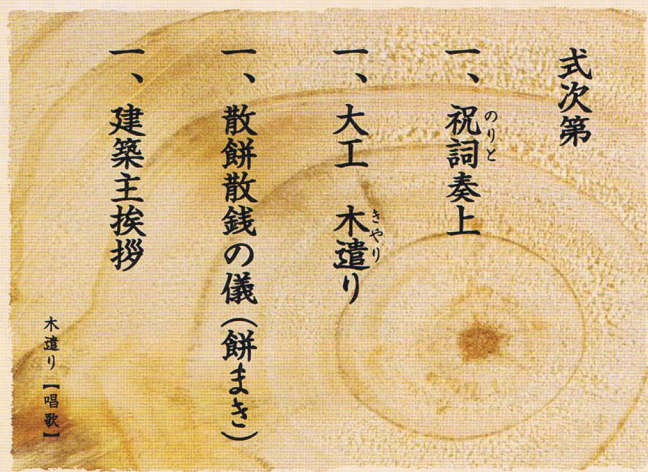 式次第
一、祝詞奏上
のりと
一、大工　木遣り
きやり
一、散餅散銭の儀（餅まき）
一、建築主挨拶
木遣り【唱歌】